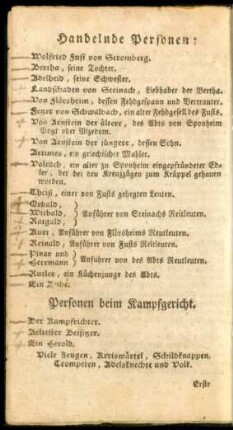 Handelnde Personen:
Wolfried Fust von Stromberg.
Bertha, seine Tochter.
Adelheid, seine Schwester.
Landschaden von Steinach, Liebhaber der Bertha.
Von Flörsheim, dessen Fehdgespann und Vertrauter.
Fezer von Schwalbach, ein alter Fehdgesell des Fusts.
Von Arnstein der ältere, des Abts von Sponheim
Vogt oder Vizedom.
Von Arnstein der jüngere, dessen Sohn.
ein griechischer Mahler.
ein alter zu Sponheim eingepfründeter Ed-
ler, der bei den Kreuzzügen zum Krüppel gehauen
worden.
Theiß, einer von Fusts gelegten Leuten.
Wirbald, Anführer von Steinachs Reitleuten.
Ratgald,
Auer, Anführer von Flörsheims Reutleuten.
Reinald, Anführer von Fusts Reitleuten.
Pinar und
Herrmann Anführer von des Abts Reutleuten.
Rutler, ein Küchenjunge des Abts.
Ein
Personen beim Kampfgericht.
Der Kampfrichter.
Aeltester Beisitzer.
Ein Herold.
Viele Zeugen, Kreiswärtel, Schildknappen,
Trompeten, Adelsknechte und Volk.
Erste